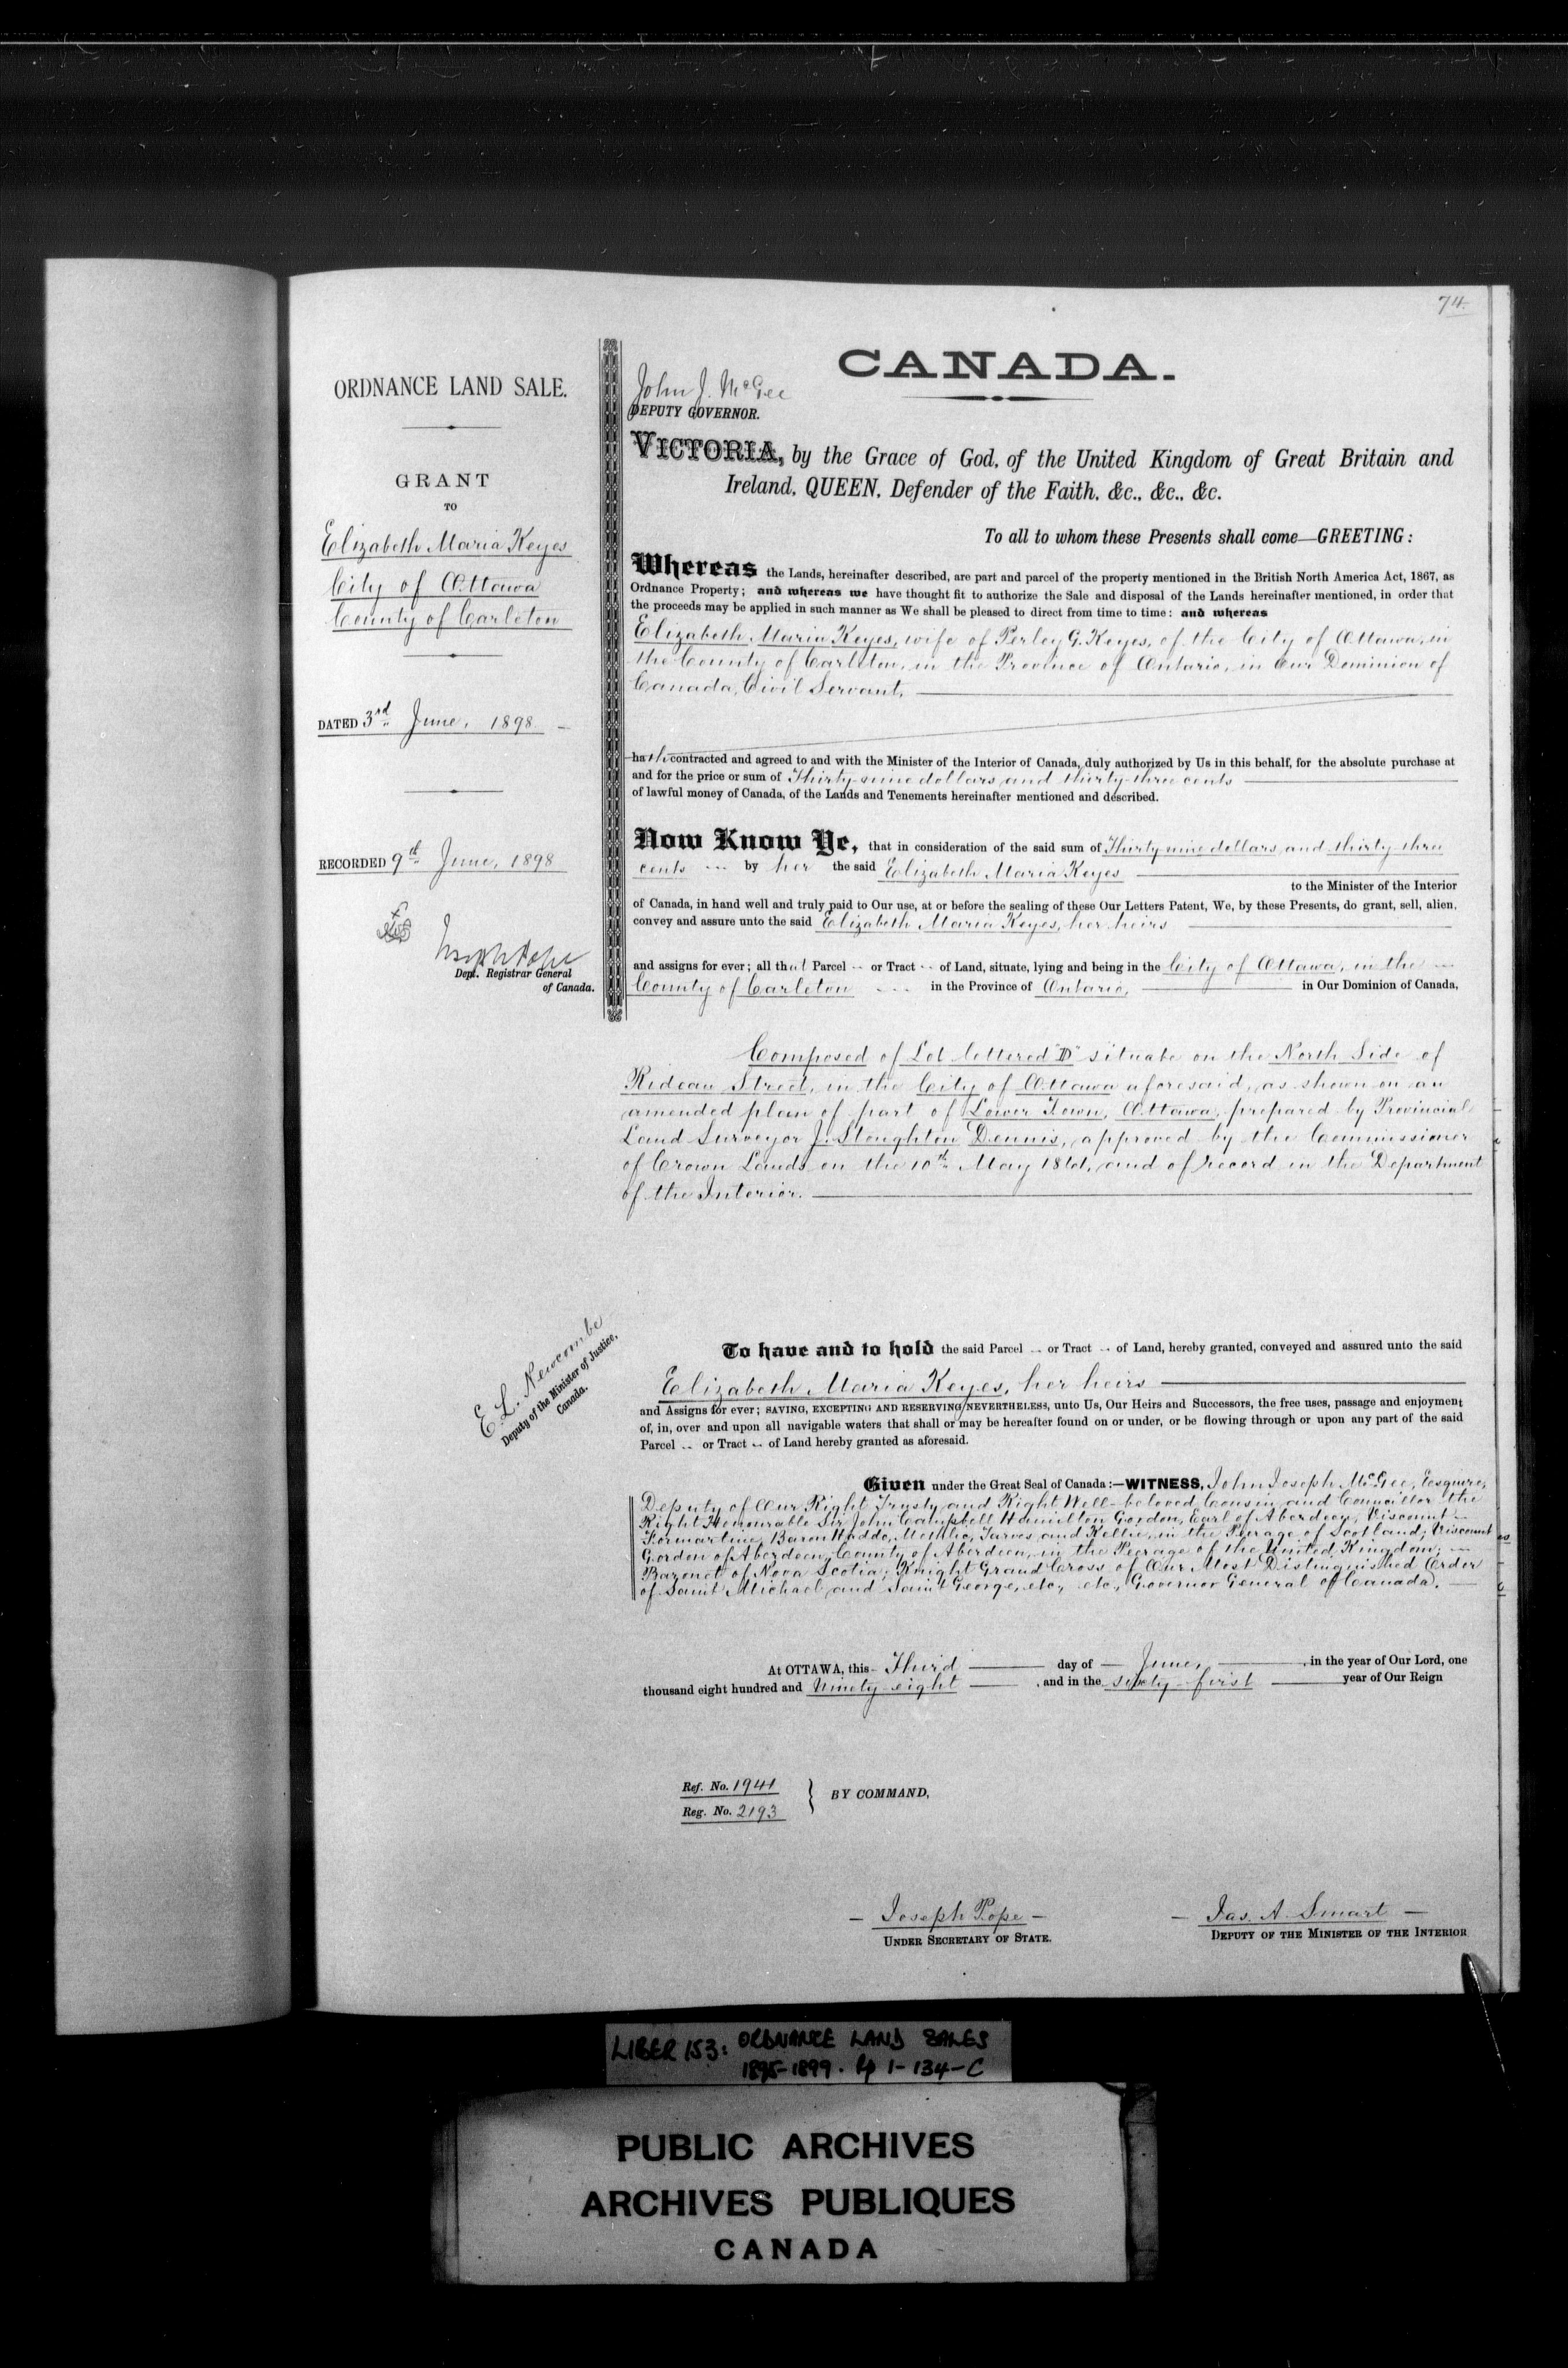 74.
ORDNANCE LAND SALE.
GRANT
TO
Elizabeth Maria Keyes
City of Ottawa
County of Carleton
DATED 3rd June, 1898
RECORDED 9th June, 1898
Joseph Pope
Dept. Registrar General
of Canada.
CANADA.
John J. McGee
DEPUTY GOVERNOR.
VICTORIA, by the Grace of God, of the United Kingdom of Great Britain and
Ireland, QUEEN, Defender of the Faith, &c., &c., &c.
To all to whom these Presents shall come—GREETING:
Whereas the Lands, hereinafter described, are part and parcel of the property mentioned in the British North America Act, 1867, as
Ordnance Property; and whereas we have thought fit to authorize the Sale and disposal of the Lands hereinafter mentioned, in order that
the proceeds may be applied in such manner as We shall be pleased to direct from time to time: and whereas
Elizabeth Maria Keyes, wife of Perley G. Keyes, of the City of Ottawa, in
the County of Carleton, in the Province of Ontario, in Our Dominion of
Canada, Civil Servant,
hath contracted and agreed to and with the Minister of the Interior of Canada, duly authorized by Us in this behalf, for the absolute purchase at
and for the price or sum of Thirty-nine dollars and thirty-three cents
of lawful money of Canada, of the Lands and Tenements hereinafter mentioned and described.
Now Know Ye, that in consideration of the said sum of Thirty-nine dollars and thirty-three
cents by her the said Elizabeth Maria Keyes
to the Minister of the Interior
of Canada, in hand well and truly paid to Our use, at or before the sealing of these Our Letters Patent, We, by these Presents, do grant, sell, alien,
convey and assure unto the said Elizabeth Maria Keyes, her heirs
and assigns for ever; all that Parcel or Tract of Land, situate, lying and being in the City of Ottawa, in the
County of Carleton in the Province of Ontario, in Our Dominion of Canada,
Composed of Lot lettered "D" situate on the North Side of
Rideau Street, in the City of Ottawa aforesaid, as shown on an
amended plan of part of Lower Town, Ottawa, prepared by Provincial
Land Surveyor J. Stoughton Dennis, approved by the Commissioner
of Crown Lands on the 10th May and of record in the Department
of the Interior.
E. L. Newcombe
Deputy of the Minister of Justice,
Canada.
To have and to hold the said Parcel or Tract of Land, hereby granted, conveyed and assured unto the said
Elizabeth Maria Keyes, her heirs
and Assigns for ever; SAVING, EXCEPTING AND RESERVING NEVERTHELESS, unto Us, Our Heirs and Successors, the free uses, passage and enjoyment
of, in, over and upon all navigable waters that shall or may be hereafter found on or under, or be flowing through or upon any part of the said
Parcel or Tract of Land hereby granted as aforesaid.
Given under the Great Seal of Canada:—WITNESS, John Joseph McGee, Esquire,
Deputy of Our Right Trusty and Right Well-beloved Cousin and Councillor the
Right Honourable Sir John Campbell Hamilton Gordon, Earl of Aberdeen; Viscount
Formartine, Baron Haddo, Methlic, Tarves and Kellie, in the Peerage of Scotland; Viscount
Gordon of Aberdeen, County of Aberdeen, in the Peerage of the United Kingdom;
Baronet of Nova Scotia; Knight Grand Cross of Our Most Distinguished Order
of Saint Michael and Saint George, etc., etc., Governor General of Canada.
At OTTAWA, this Third day of June, in the year of Our Lord, one
thousand eight hundred and Ninety-eight, and in the sixty-first year of Our Reign
Ref. No. 1941
Reg. No. 2193
BY COMMAND,
Joseph Pope
UNDER SECRETARY OF STATE.
Jas. A. Smart
DEPUTY OF THE MINISTER OF THE INTERIOR
LIBER 153: ORDNANCE LAND SALES
1895-1899. pp 1-134-C
PUBLIC ARCHIVES
ARCHIVES PUBLIQUES
CANADA